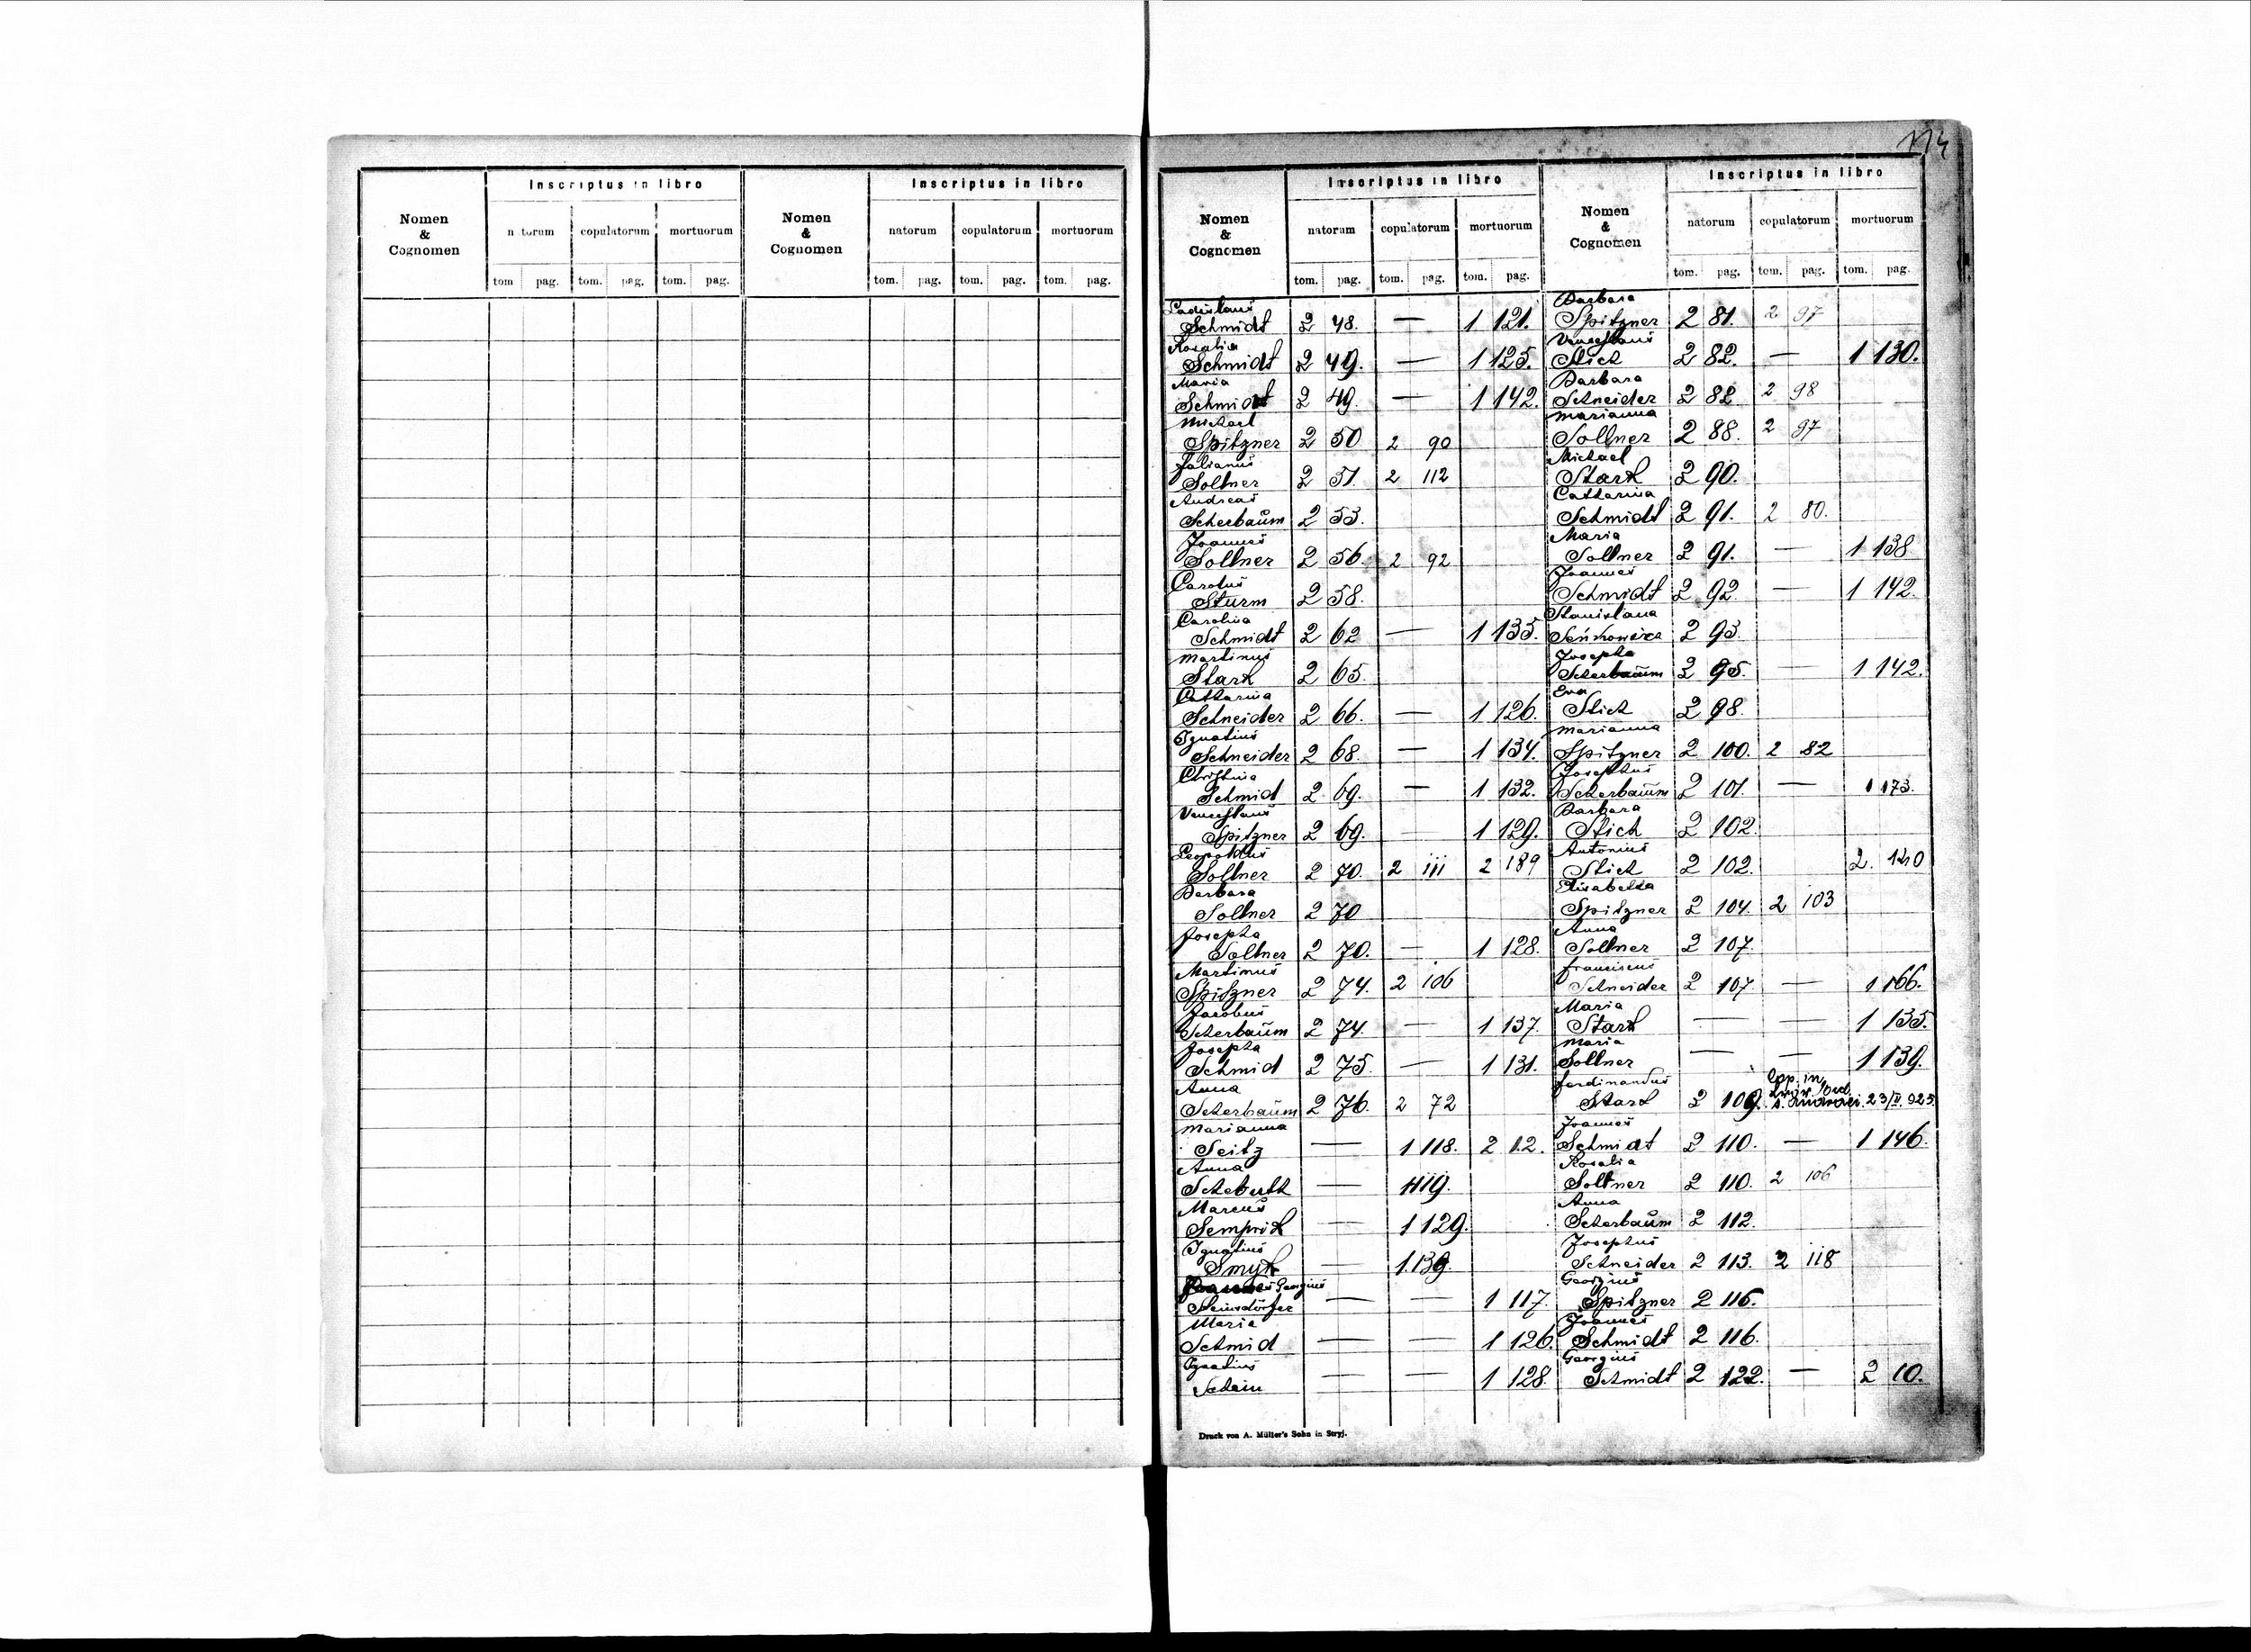 114
Inscriptus in libro
Inscriptus in libro
Nomen & Cognomen
natorum copulatorum mortuorum
Nomen & Cognomen
natorum copulatorum mortuorum
tom. pag. tom. pag. tom. pag.
tom. pag. tom. pag. tom. pag.
Inscriptus in libro
Inscriptus in libro
Nomen & Cognomen
natorum copulatorum mortuorum
Nomen & Cognomen
natorum copulatorum mortuorum
tom. pag. tom. pag. tom. pag.
tom. pag. tom. pag. tom. pag.
Ladislaus
Schmidt 2 48. — 1 121.
Rosalia
Schmidt 2 49. — 1 125.
Maria
Schmidt 2 49. — 1 142.
Michael
Spitzner 2 50 2 90
Julianus
Sollner 2 51. 2 112
Andreas
Scherbaum 2 53.
Joannes
Sollner 2 56. 2 92
Carolus
Sturm 2 58.
Carolina
Schmidt 2 62 — 1 135.
Martinus
Stark 2 65.
Catharina
Schneider 2 66. — 1 126.
Ignatius
Schneider 2 68. — 1 134.
Christina
Schmid 2 69. — 1 132.
Venceslaus
Spitzner 2 69. — 1 129.
Leopoldus
Sollner 2 70. 2 111 2 189
Barbara
Sollner 2 70
Josepha
Sollner 2 70. — 1 128.
Martinus
Spitzner 2 74. 2 106
Jacobus
Scherbaum 2 74. — 1 137.
Josepha
Schmid 2 75. — 1 131.
Anna
Scherbaum 2 76. 2 72
Marianna
Seitz — 1 118. 2 12.
Anna
— 1 119.
Marcus
— 1 129.
Ignatius
— 1 139.
Georgius
— — 1 117.
Maria
Schmid — — 1 126.
Ignatius
Schein — — 1 128.
Barbara
Spitzner 2 81. 2 97
Venceslaus
Stich 2 82. — 1 130.
Barbara
Schneider 2 82 2 98
Marianna
Sollner 2 88. 2 97
Michael
Stark 2 90.
Catharina
Schmidt 2 91. 2 80.
Maria
Sollner 2 91. — 1 138
Joannes
Schmidt 2 92. — 1 142.
Stanislava
2 93.
Josepha
Scherbaum 2 95. — 1 142.
Eva
Stich 2 98.
Marianna
Spitzner 2 100. 2 82
Josephus
Scherbaum 2 101. — 1 173.
Barbara
Stich 2 102.
Antonius
Stich 2 102. 2. 140
Elisabetha
Spitzner 2 104. 2 103
Anna
Sollner 2 107.
Franciscus
Schneider 2 107. — 1 166.
Maria
Stark — — 1 135.
Maria
Sollner — — 1 139.
Ferdinandus
Stark 2 109. Cop. in 23/II. 925.
Joannes
Schmidt 2 110. — 1 146.
Rosalia
Sollner 2 110. 2 106
Anna
Scherbaum 2 112.
Josephus
Schneider 2 113. 2 118
Georgius
Spitzner 2 116.
Joannes
Schmidt 2 116.
Georgius
Schmidt 2 122. — 2 10.
Druck von A. Müller's Sohn in Stryj.